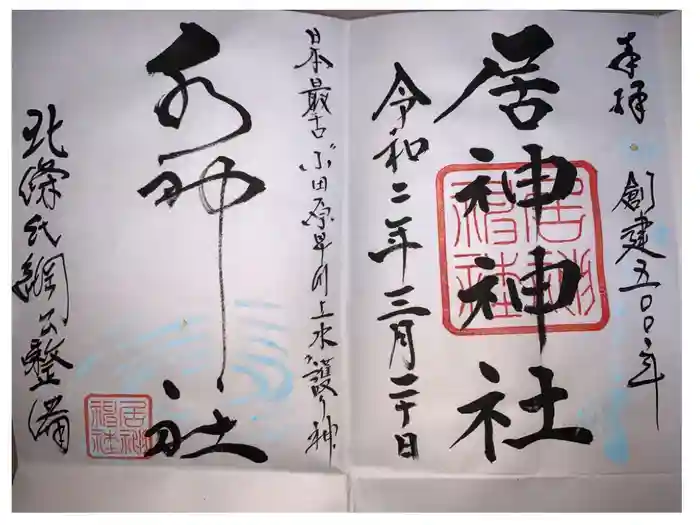 奉拝 創建五〇〇年
居神神社
居神神社
令和二年三月二十日
日本最古小田原早川上水護り神
水神社
居神神社
北條氏綱公整備